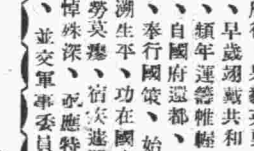 、早歲翊戴共和
、頻年運籌帷幄
、自國府還都、
、奉行國策、始
溯生平、功在國
勞莫瘳、宿疾
悼殊深、應特
、並交軍事委員